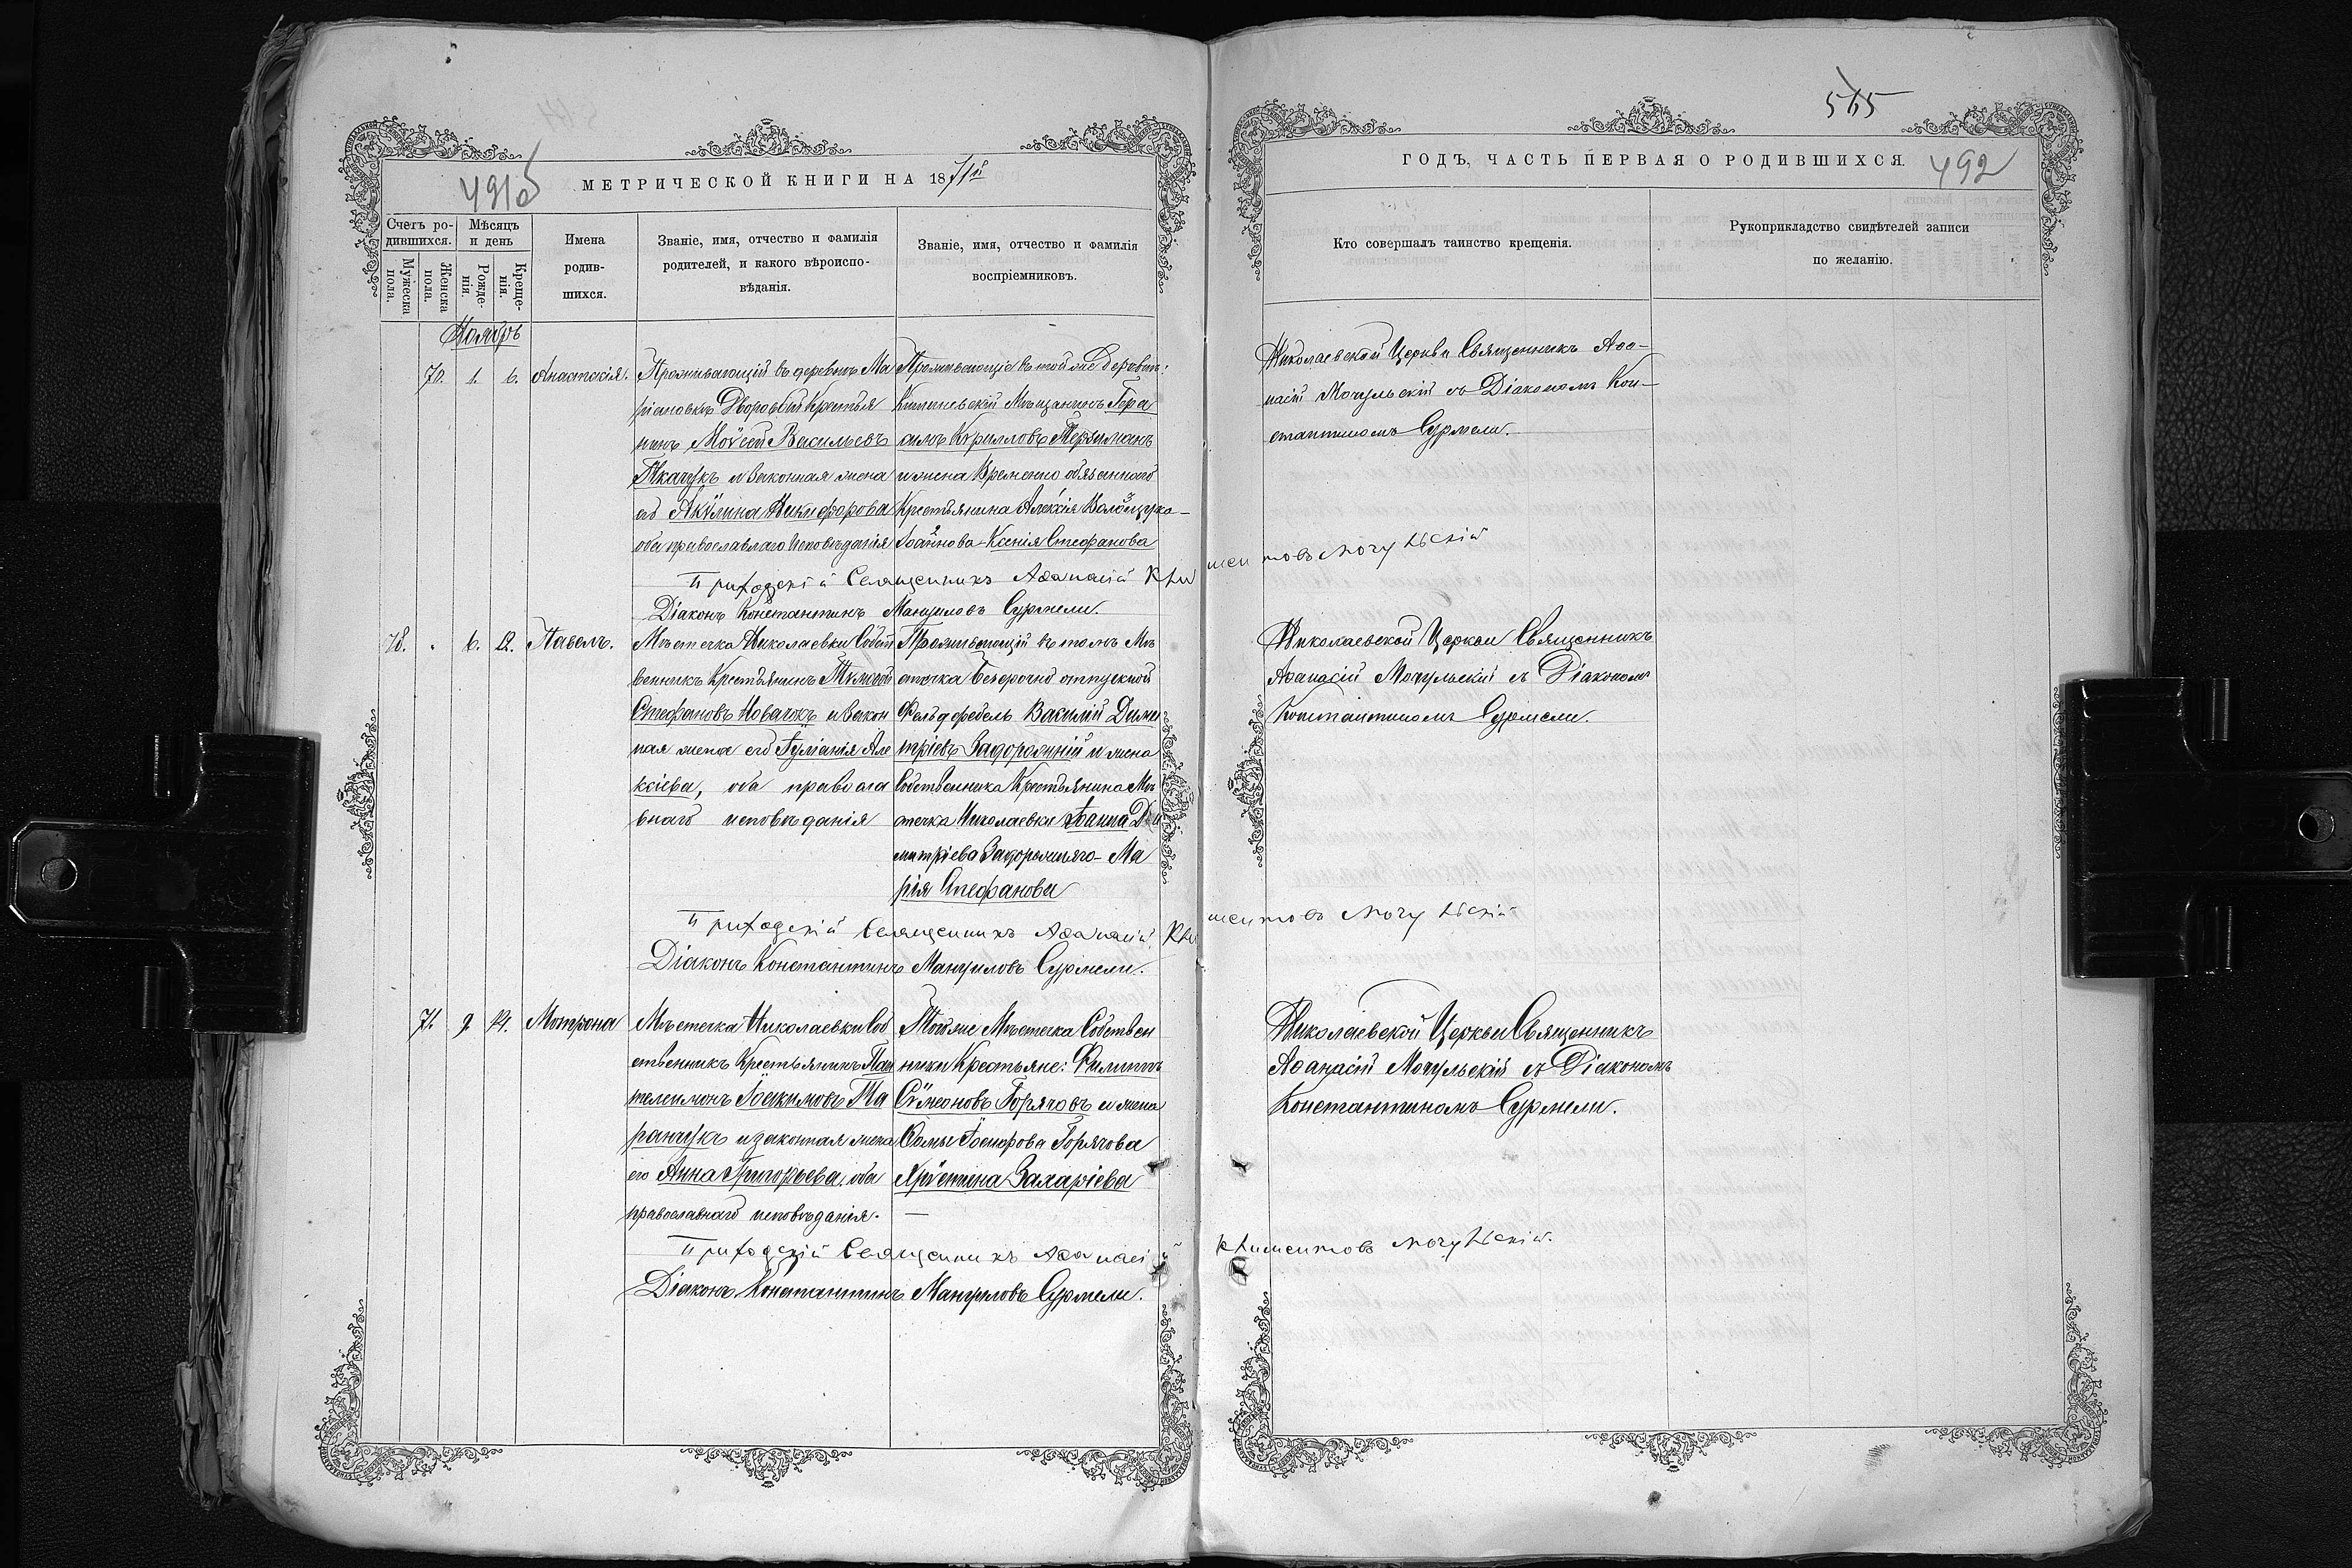 565
491об
МЕТРИЧЕСКОЙ КНИГИ НА 1871й
ГОДЪ, ЧАСТЬ ПЕРВАЯ О РОДИВШИХСЯ.
492
Счетъ ро-
дившихся.
Мужеска
пола.
Женска
пола.
Мѣсяцъ
и день
Рожде-
нія.
Креще-
нія.
Имена
родив-
шихся.
Званіе, имя, отчество и фамилія
родителей, и какого вѣроиспо-
вѣданія.
Званіе, имя, отчество и фамилія
воспріемниковъ.
Кто совершалъ таинство крещенія.
Рукоприкладство свидѣтелей записи
по желанію.
Ноябрь
70. 1. 6. Анастасія.
Проживающій въ деревнѣ Ма
ріановкѣ Дворовый Крестья
нинъ Моѵсей Васильевъ
Ткачукъ и Законная жена
его Акѵлина Никифорова
оба православнаго исповѣданія
Проживающіе въ той же деревнѣ:
Кишиневскій Мѣщанинъ Гера
симъ Кѵрилловъ Терзиманъ
и жена Временно обязаннаго
Крестьянина Алексія Волощука
Іоаннова Ксенія Стефанова
Николаевской Церкви Священникъ Аѳа-
насій Мочульскій съ Діакономъ Кон-
стантиномъ Сурмели.
Приходскій Священникъ Аѳанасій Климентовъ Мочульскій
Діаконъ Константинъ Мануиловъ Сурмели.
78. " 6. 12. Павелъ.
Мѣстечка Николаевки Собст
венникъ Крестьянинъ Тимоѳей
Стефановъ Новачокъ и Закон
ная жена его Іуліанія Але
ксіева, оба правосла
внаго исповѣданія
Проживающій въ томъ Мѣ
стечкѣ безсрочно отпускной
Фельдфебель Василій Дими
тріевъ Задорожній и жена
Собственника Крестьянина Мѣ
стечка Николаевки Іоанна Ди
митріева Задорожняго - Ма
рія Стефанова
Николаевской Церкви Священникъ
Аѳанасій Мочульскій съ Діакономъ
Константиномъ Сурмели.
Приходскій Священникъ Аѳанасій Климентовъ Мочульскій
Діаконъ Константинъ Мануиловъ Сурмели.
71. 9. 14. Матрона
Мѣстечка Николаевки Соб
ственникъ Крестьянинъ Пан
телеимонъ Іоакимовъ Та
ранчукъ и законная жена
его Анна Григорьева, оба
православнаго исповѣданія.
Тогоже Мѣстечка Собствен
ники Крестьяне: Филиппъ
Сѵмеоновъ Горячовъ и жена
Ѳомы Іосифова Горячова
Хрістина Захаріева
Николаевской Церкви Священникъ
Аѳанасій Мочульскій съ Діакономъ
Константиномъ Сурмели.
Приходскій Священникъ Аѳанасій Климентовъ Мочульскій.
Діаконъ Константинъ Мануиловъ Сурмели.